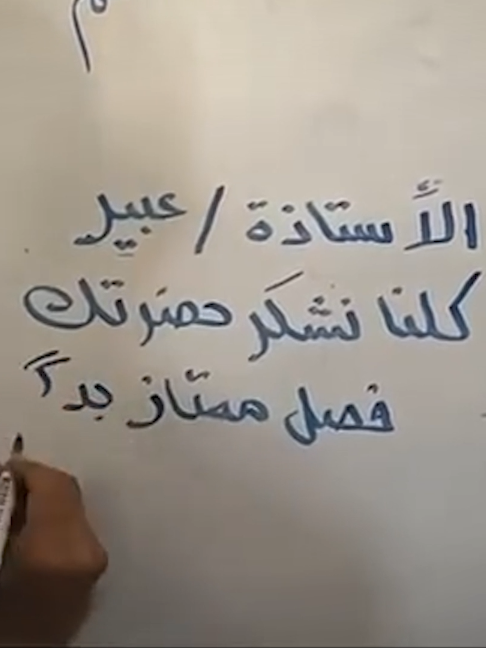 م
الأستاذة / عبير
كلنا نشكر حضرتك
فصل ممتاز جداً